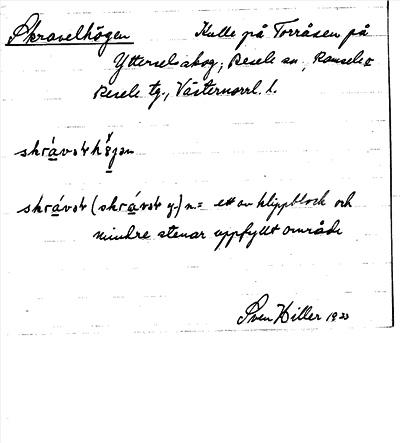 Skravelhögen Kulle på Torråsen på
Ytterselsskog; Resele sn; Ramsele &
Resele tg., Västernorrl. l.
skrávəɫhö̀jən
skrávəɫ (skrávəɫ y.) n. = ett av klippblock och
mindre stenar uppfyllt område
Sven Hiller 1920